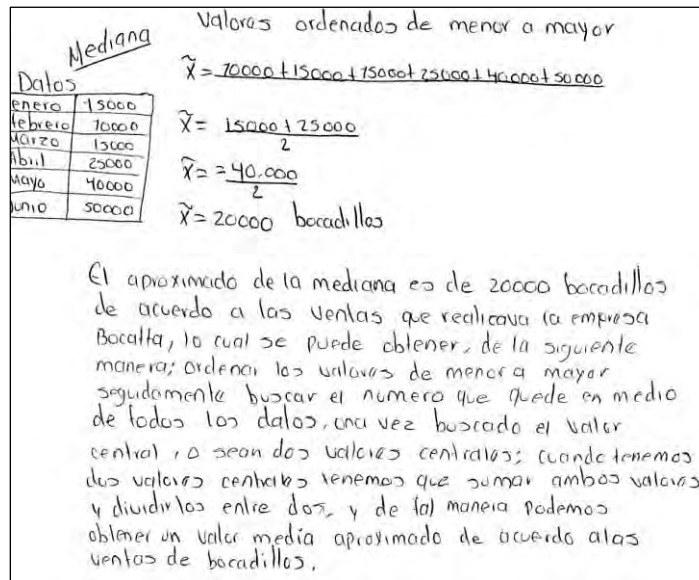 Mediana
Valores ordenados de menor a mayor
x̃ = 10000 + 15000 + 15000 + 25000 + 40000 + 50000
Datos
enero 15000
febrero 10000
Marzo 15000
Abril 25000
Mayo 40000
Junio 50000
x̃ = 15000 + 25000
2
x̃ = = 40.000
2
x̃ = 20000 bocadillos
El aproximado de la mediana es de 20000 bocadillos
de acuerdo a las ventas que realicava la empresa
Bocatta, lo cual se puede obtener, de la siguiente
manera; ordenar los valores de menor a mayor
seguidamente buscar el numero que quede en medio
de todos los datos, una vez buscado el valor
central, o sean dos valores centrales; cuando tenemos
dos valores centrales tenemos que sumar ambos valores
y dividirlos entre dos, y de tal manera podemos
obtener un valor media aproximado de acuerdo alas
ventas de bocadillos.